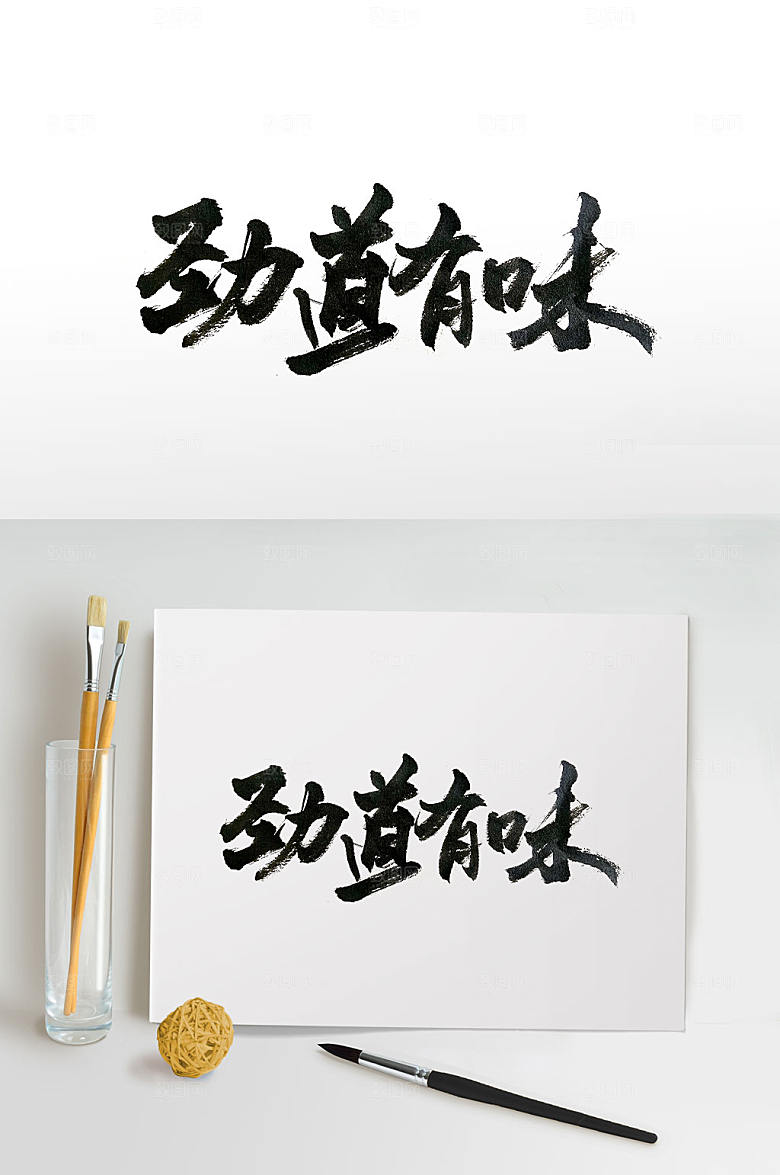 劲道有味
劲道有味